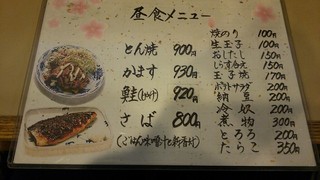 昼食メニュー
とん焼 900円
かます 930円
鮭(かけ) 920円
さば 800円
(ごはん味噌汁と新香付)
焼のり 100円
生玉子 100円
おしたし 150円
しらす合え 150円
玉子焼 170円
ポテトサラダ 200円
納豆 200円
冷奴 200円
煮物 300円
とろろ 200円
たらこ 350円